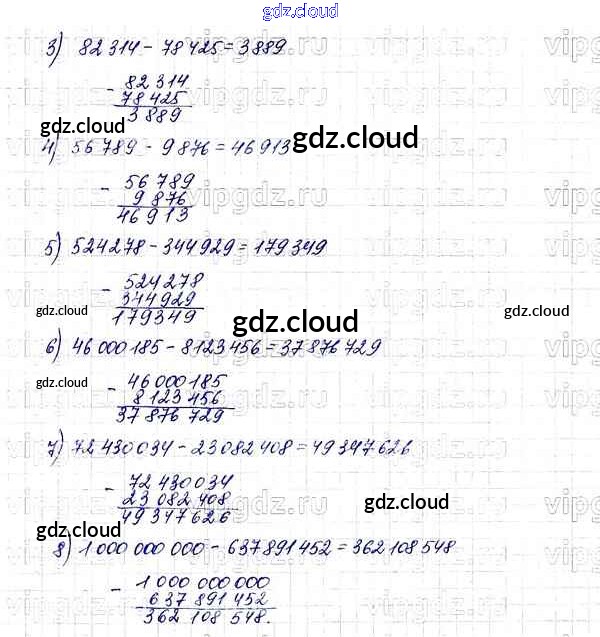 gdz.cloud
3) 82 314 - 78 425 = 3889
- 82 314
78 425
3 889
gdz.cloud gdz.cloud
4) 56 789 - 9 876 = 46 913
- 56 789
9 876
46 913
5) 524278 - 344929 = 179349
- 524278
344929
179349
gdz.cloud gdz.cloud gdz.cloud
6) 46 000 185 - 8123 456 = 37 876 729
- 46 000 185
8 123 456
37 876 729
gdz.cloud
7) 72 430 034 - 23 082 408 = 49 347 626
- 72 430 034
23 082 408
49 347 626
gdz.cloud
gdz.cloud
8) 1 000 000 000 - 637 891 452 = 362 108 548
- 1 000 000 000
637 891 452
362 108 548.